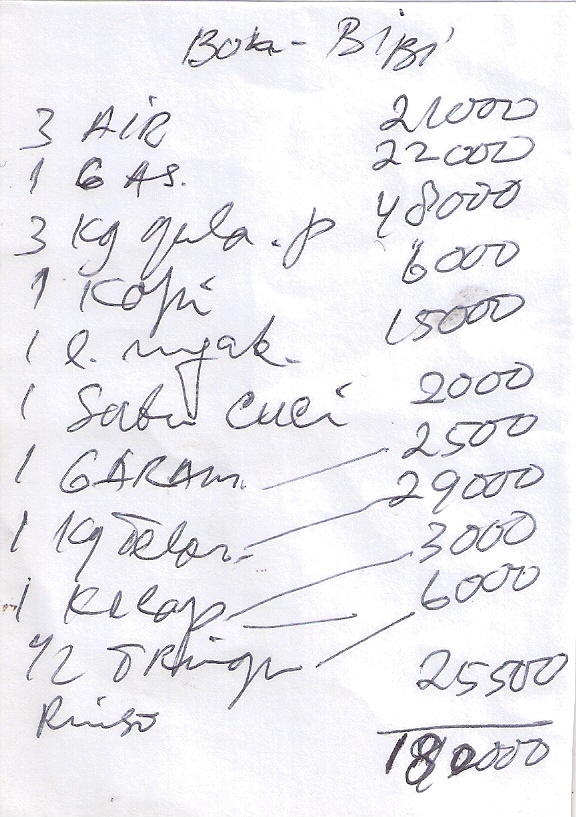 Bon - BiBi
3 AIR 21000
1 GAS. 22000
3 Kg gula . P 48000
1 Kopi 6000
1 l. myak. 15000
1 Sabu Cuci 2000
1 GARAM. 2500
1 Kg Telor. 29000
1 Kecap 3000
1/2 TRingu 6000
Rinso 25500
180000